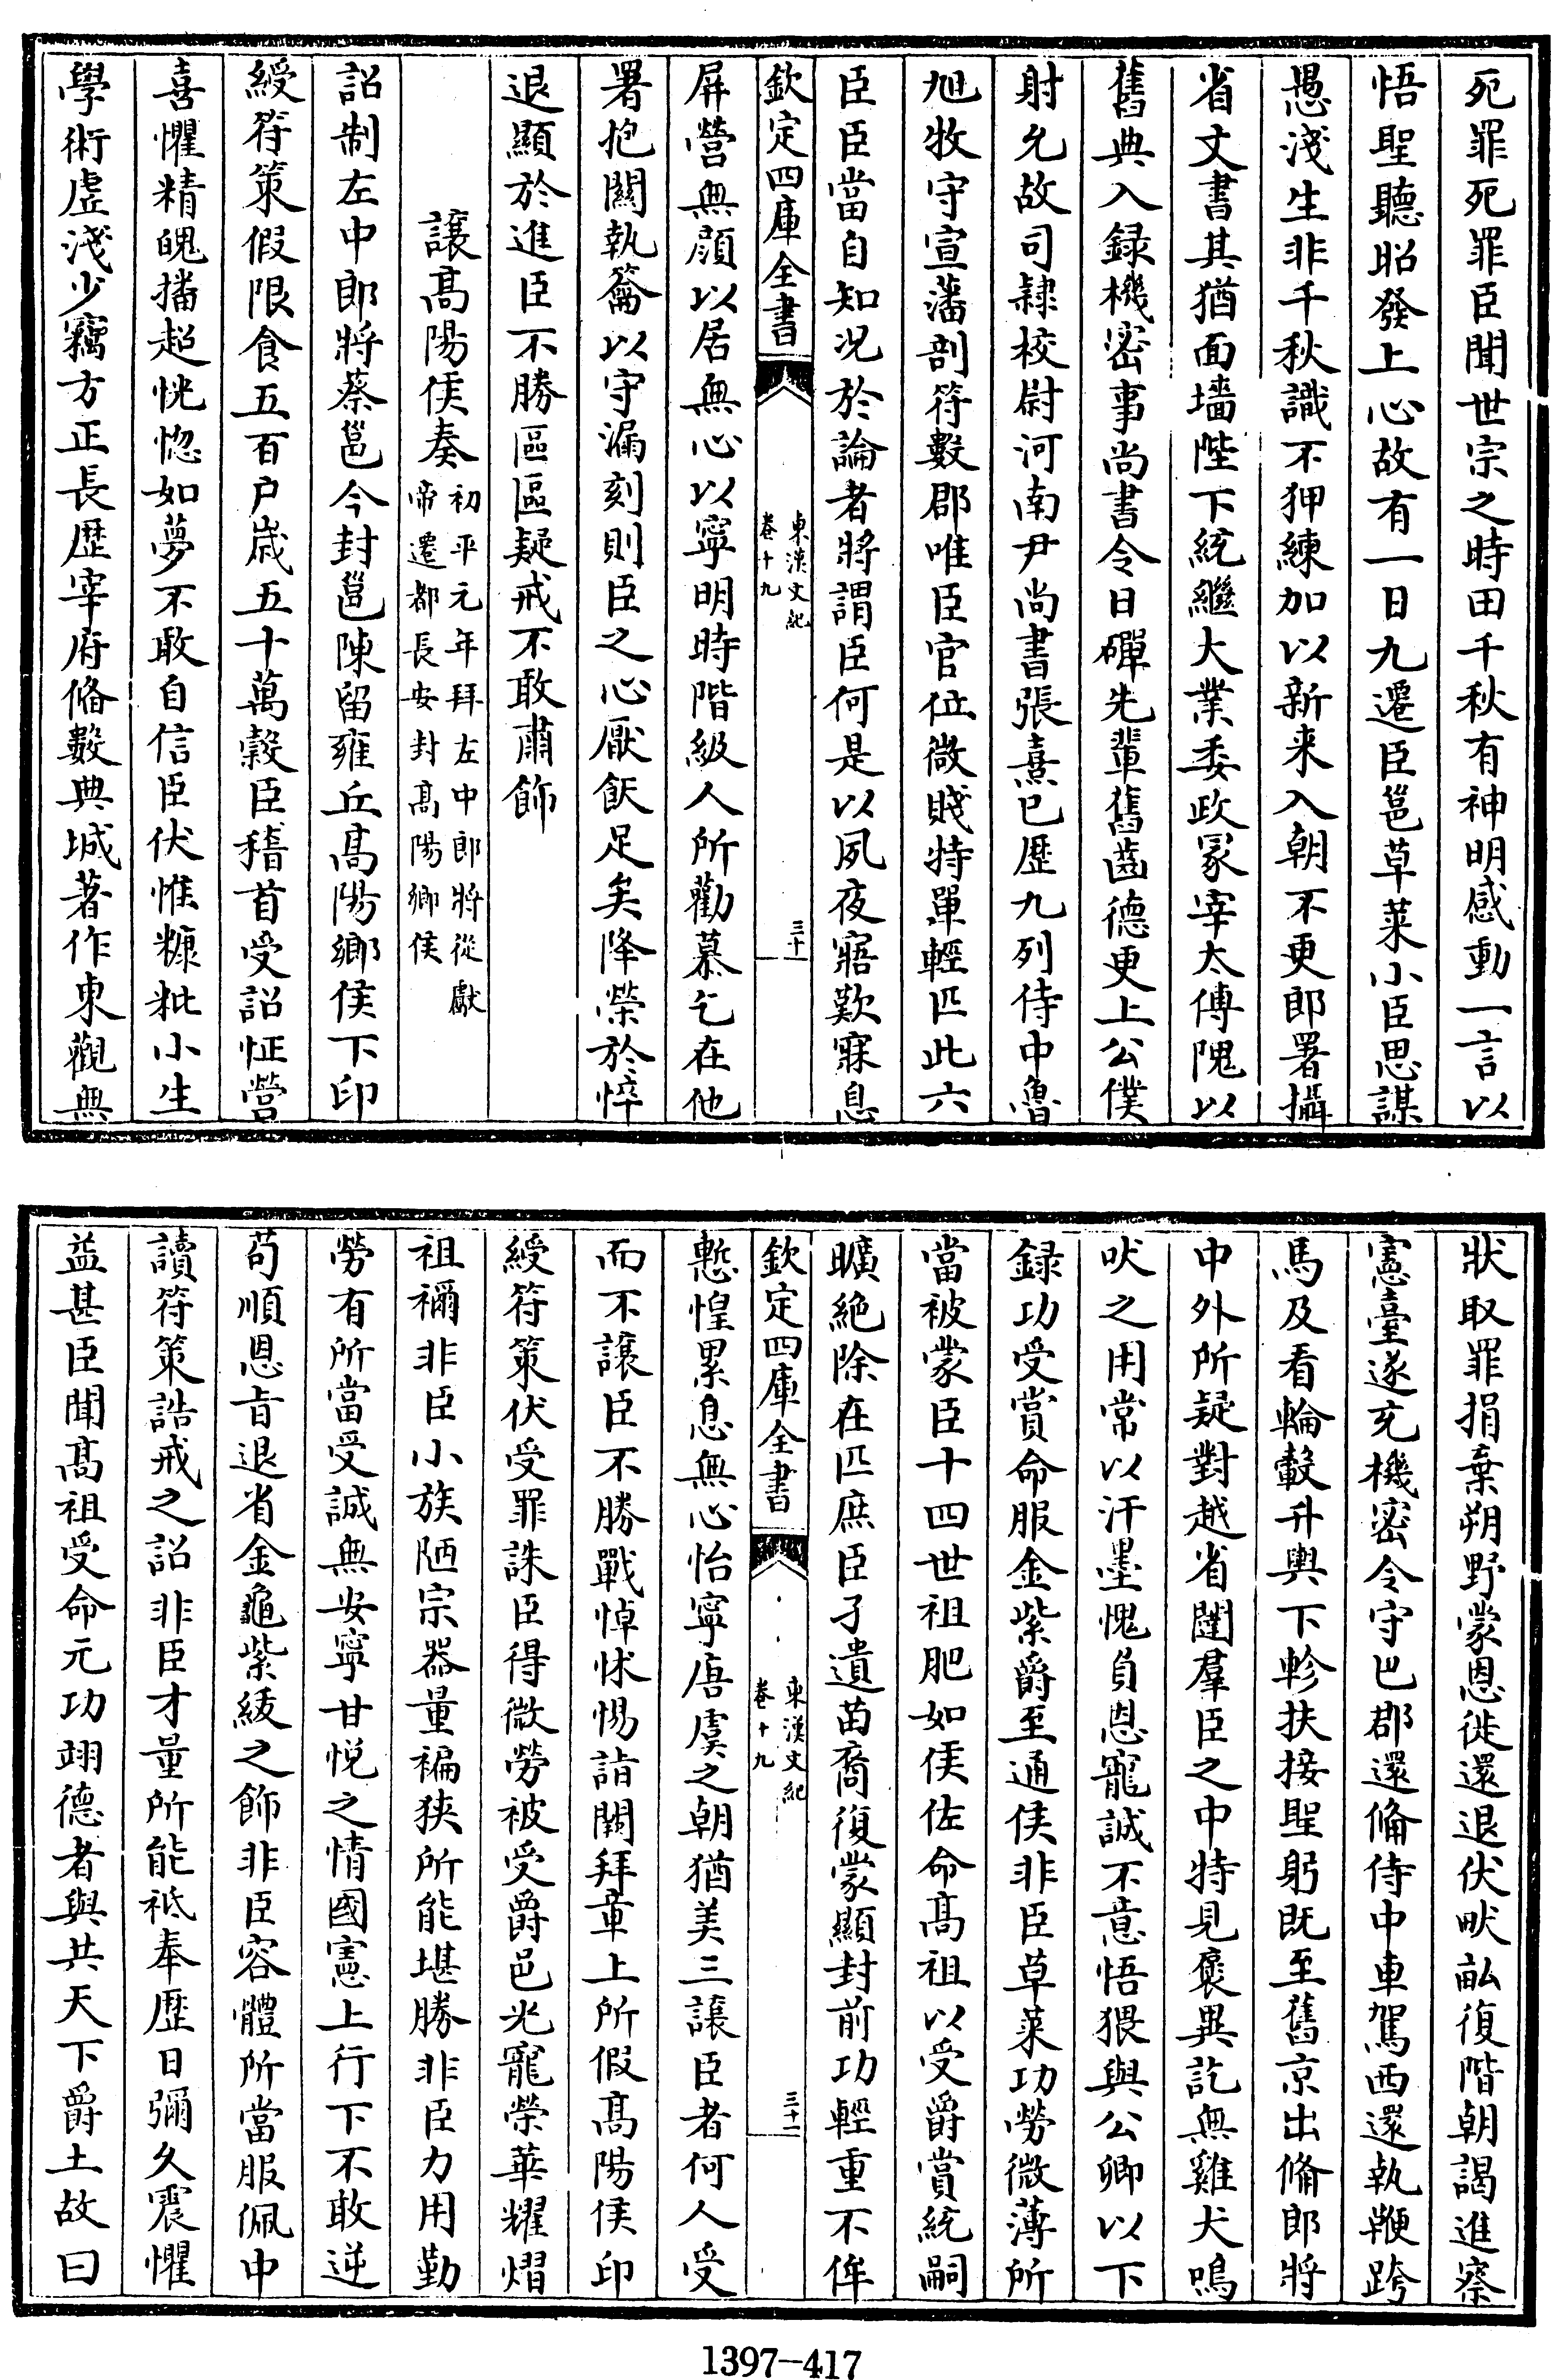 死罪死罪臣聞世宗之時田千秋有神明感動一言以
悟聖聽昭發上心故有一日九遷臣邕草萊小臣思謀
愚淺生非千秋識不狎練加以新来入朝不更郎署攝
省文書其猶面墻陛下統繼大業委政冢宰太傅隗以
舊典入録機密事尚書令日磾先輩舊齒德更上公僕
射允故司隷校尉河南尹尚書張熹已歴九列侍中魯
旭牧守宣藩剖符數郡唯臣官位微賤特單輕匹此六
臣臣當自知况於論者將謂臣何是以夙夜寤歎寐息
欽定四庫全書
東漢文紀
卷十九
三十
屏營無顔以居無心以寧明時階級人所勸慕乞在他
署抱關執籥以守漏刻則臣之心厭飫足矣降榮於悴
退顯於進臣不勝區區疑戒不敢肅飾
讓髙陽侯奏
初平元年拜左中郎將從獻
帝遷都長安封髙陽鄉侯
詔制左中郎將蔡邕今封邕陳留雍丘高陽鄉侯下印
綬符策假限食五百户歲五十萬穀臣稽首受詔怔營
喜懼精魄播超恍惚如夢不敢自信臣伏惟糠粃小生
學術虚淺少竊方正長歴宰府脩數典城著作東觀無
狀取罪捐棄朔野蒙恩徙還退伏畎畆復階朝謁進察
憲臺遂充機密令守巴郡還備侍中車駕西還執鞭跨
馬及看輪轂升輿下軫扶接聖躬既至舊京出備郎將
中外所疑對越省闥羣臣之中特見褒異訖無雞犬鳴
吠之用常以汗墨愧負恩寵誠不意悟猥與公卿以下
録功受賞命服金紫爵至通侯非臣草萊功勞微薄所
當被蒙臣十四世祖肥如侯佐命髙祖以受爵賞統嗣
曠絶除在匹庶臣孑遺苗裔復蒙顯封前功輕重不侔
欽定四庫全書
東漢文紀
卷十九
三十一
慙惶累息無心怡寧唐虞之朝猶美三讓臣者何人受
而不讓臣不勝戰悼怵惕詣闕拜章上所假髙陽侯印
綬符策伏受罪誅臣得微勞被受爵邑光寵榮華耀熠
祖禰非臣小族陋宗器量褊狹所能堪勝非臣力用勤
勞有所當受誠無安寧甘悦之情國憲上行下不敢逆
苟順恩旨退省金龜紫紱之飾非臣容體所當服佩中
讀符策誥戒之詔非臣才量所能祗奉歴日彌久震懼
益甚臣聞髙祖受命元功翊德者與共天下爵土故曰
1397-417